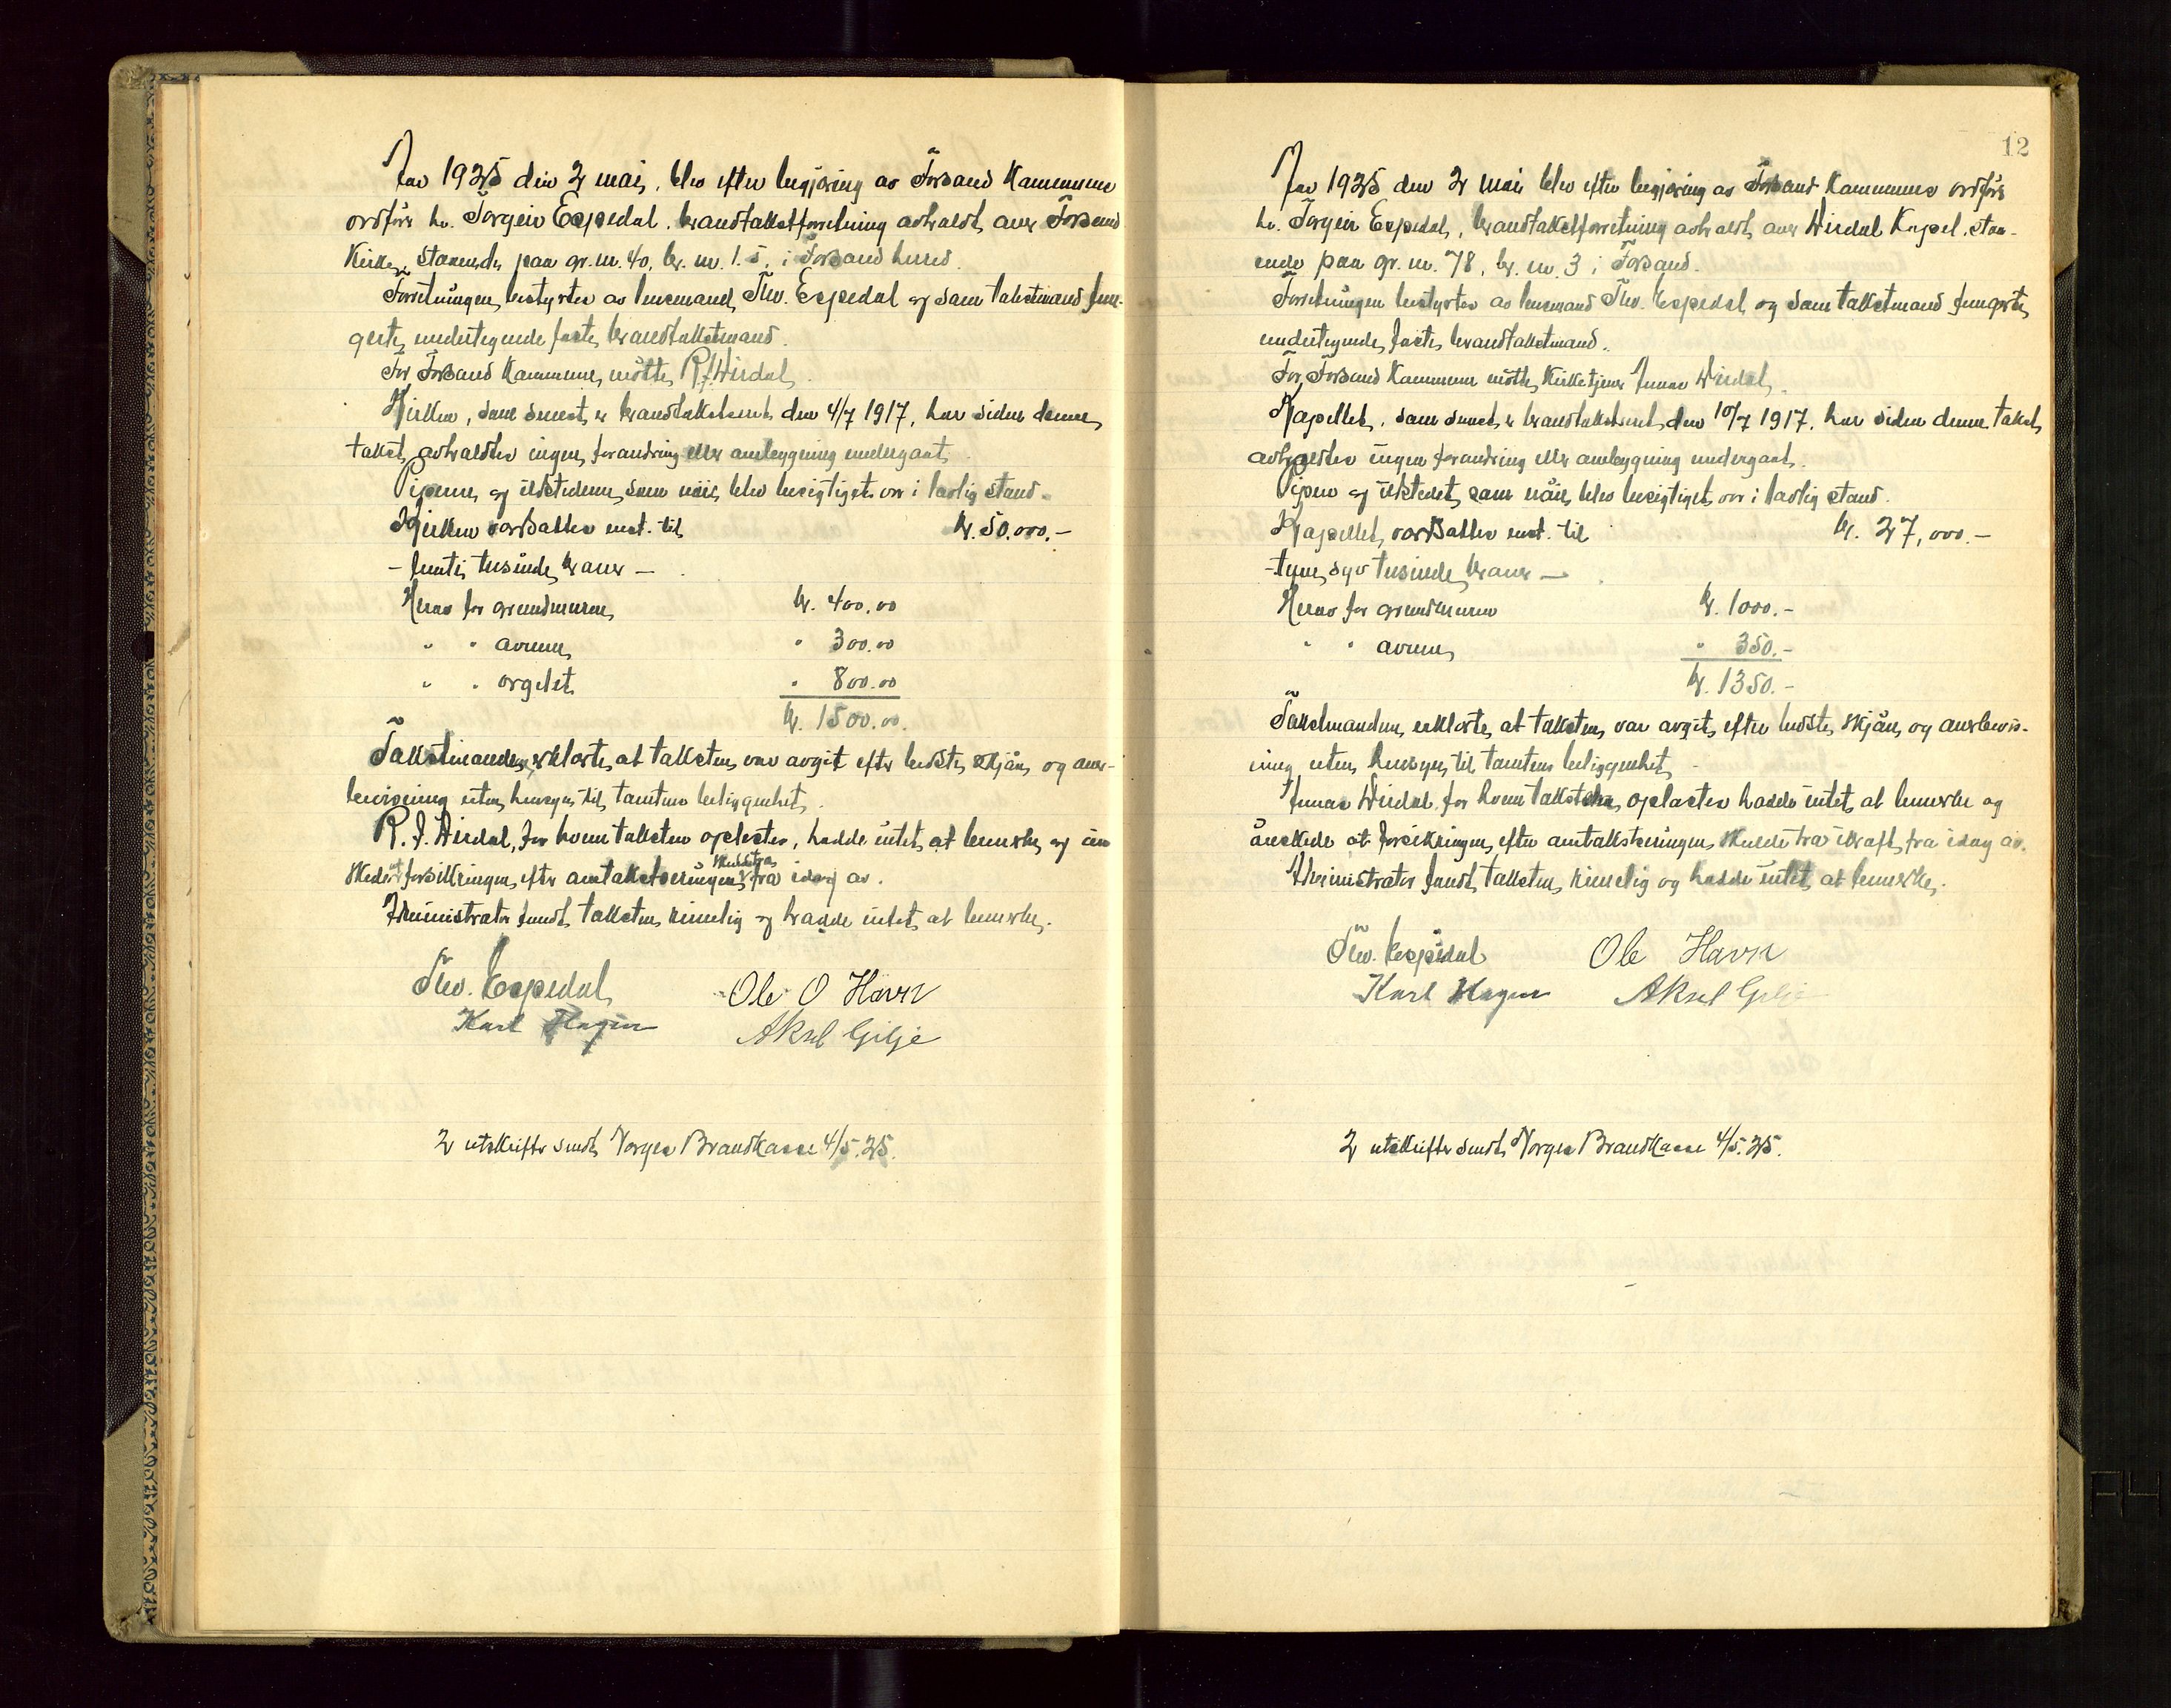 Aar 1925 den 2 mai, blev efter begjæring av Forsand Kommunes
ordfører hr. Torgeir Espedal, brandtakstforretning avholdt over Forsand
Kirke, staaende paa gr. nr. 40, br. nr. 1.5, i Forsand herred.
Forretningen bestyrtes av lensmand Thv. Espedal og som takstmænd fun-
gerte undertegnede faste brandtakstmænd.
For Forsand Kommune møtte R. J. Hirdal
Kirken, som senest er brandtaksteret den 4/7 1917, har siden denne
takst avholdtes ingen forandring eller ombygning undergaat.
Piperne og ildstederne som nøie blev besigtiget var i lovlig stand.
Kirken værdsattes enst. til kr. 50.000.-
- femti tusinde kroner -
Herav for grundmuren kr. 400.00
" " ovnene " 300.00
" " orgelet " 800.00
kr. 1500.00
Takstmændene erklærte, at taksten var avgit efter bedste skjøn og over-
bevisning uten hensyn til tomtens beliggenhet.
R. J. Hirdal, for hvem taksten oplæstes, hadde intet at bemerke og øn
skede at forsikringen efter omtakseringen skulde træ i kraft fra idag av.
Administrator fandt taksten rimelig og hadde intet at bemerke.
Thv. Espedal Ole O Havn
Karl Hagen Aksel Gilje
2 utskrifter sendt Norges Brandkasse 4/5.25.
12
Aar 1925 den 2 mai blev efter begjæring av Forsand Kommunes ordfører
hr. Torgeir Espedal, brandtakstforretning avholdt over Hirdal Kapel, staa-
ende paa gr. nr. 78, br. nr. 3 i Forsand.
Forretningen bestyrtes av lensmand Thv. Espedal og som takstmænd fungerte
undertegnede faste brandtakstmænd.
For Forsand Kommune møtte Kirketjener Hirdal
Kapellet, som senest er brandtaksteret den 10/7 1917, har siden denne takst
avholdtes ingen forandring eller ombygning undergaat.
Pipen og ildstedet, som nøie blev besigtiget var i lovlig stand.
Kapellet værdsattes enst. til kr. 27,000.-
- tyve syv tusinde kroner -
Herav for grundmuren kr. 1000.-
" " ovnene " 350.-
kr. 1350.-
Takstmændene erklærte, at taksten var avgit efter bedste skjøn og overbevis-
ning uten hensyn til tomtens beliggenhet.
Hirdal, for hvem taksten oplæstes hadde intet at bemerke og
ønskede at forsikringen efter omtakseringen skulde træ ikraft fra idag av.
Administrator fandt taksten rimelig og hadde intet at bemerke.
Thv. Espedal Ole Havn
Karl Hagen Aksel Gilje
2 utskrifter sendt Norges Brandkasse 4/5.25.